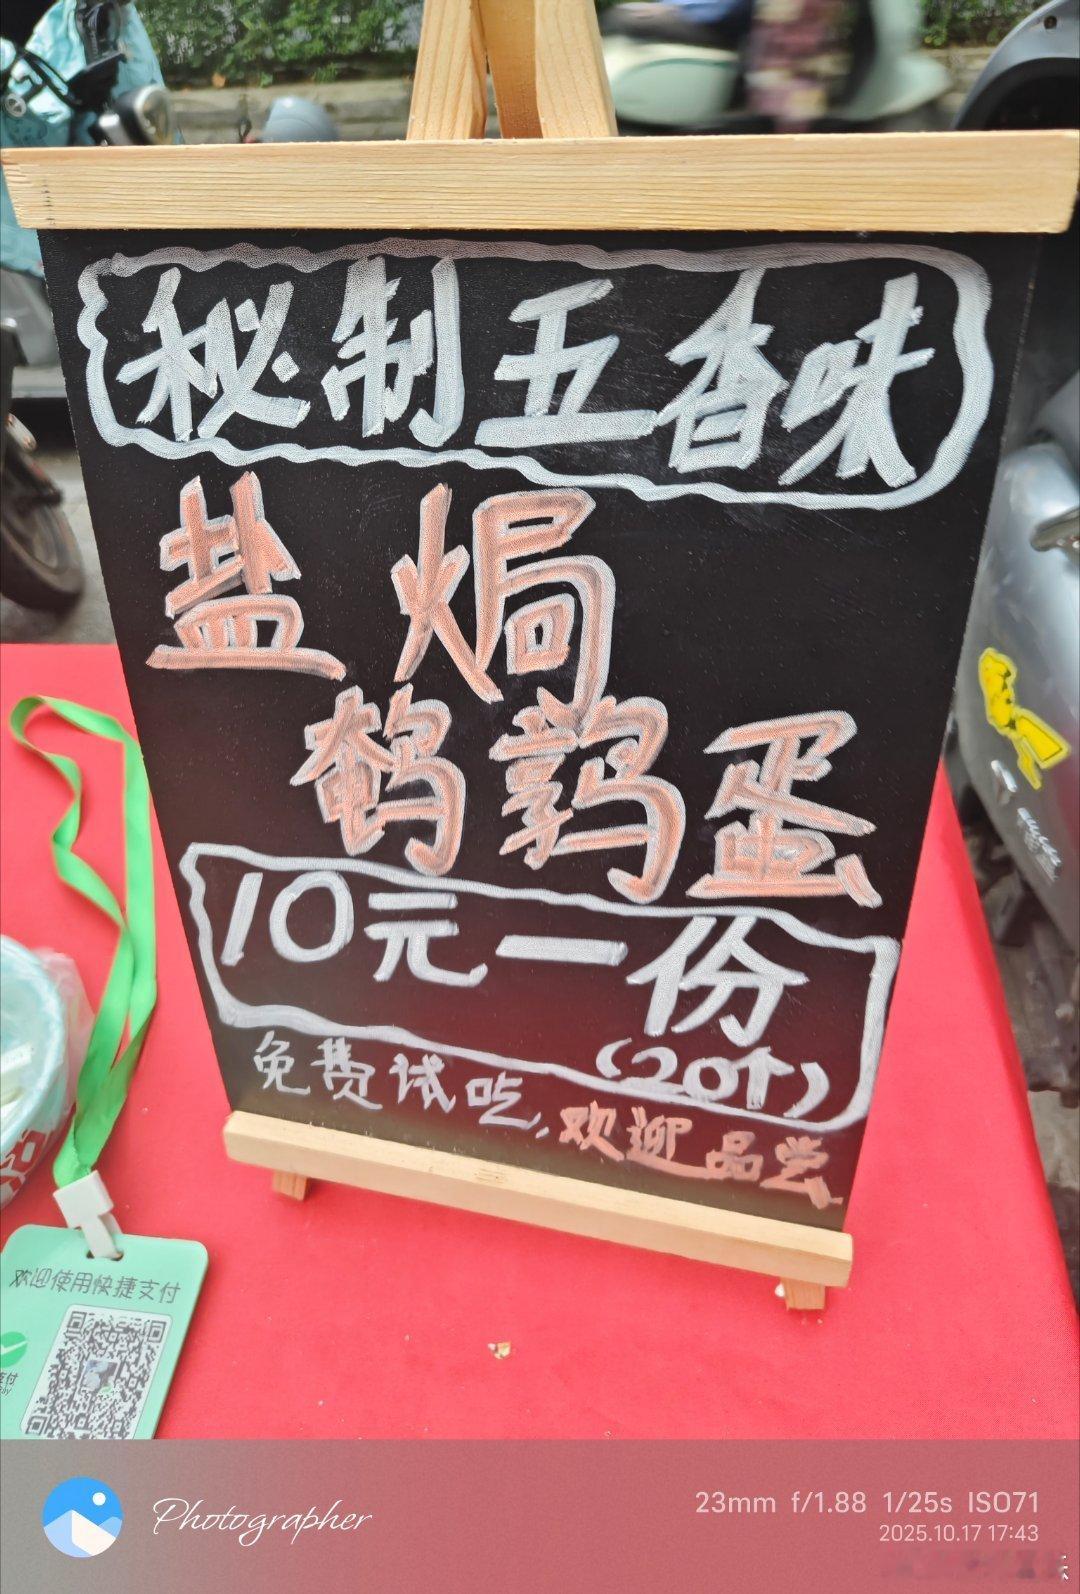 秘制五香味
盐焗
鹌鹑蛋
10元一份
(20个)
免费试吃,欢迎品尝
欢迎使用快捷支付
支付
Photographer
23mm f/1.88 1/25s ISO71
2025.10.17 17:43